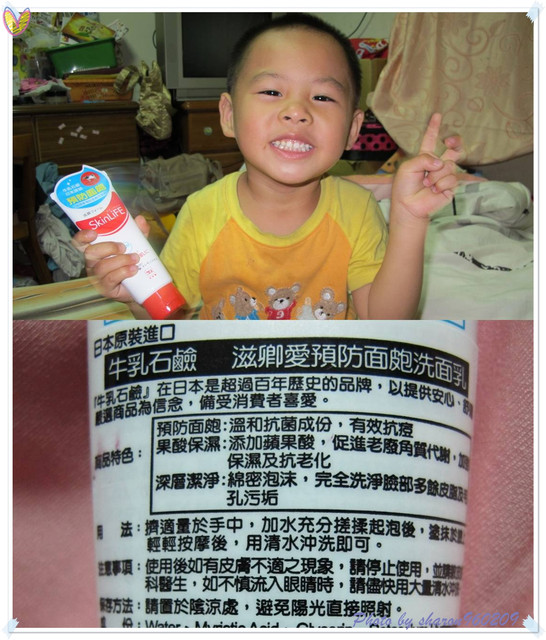 預防面皰
SkinLIFE
日本原裝進口
牛乳石鹼 滋卿愛預防面皰洗面乳
『牛乳石鹼』在日本是超過百年歷史的品牌，以提供安心、舒
商品為信念，備受消費者喜愛。
商品特色：
預防面皰:溫和抗菌成份，有效抗痘
果酸保濕:添加蘋果酸，促進老廢角質代謝，加
保濕及抗老化
深層潔淨:綿密泡沫，完全洗淨臉部多餘皮脂及
孔污垢
用 法：擠適量於手中，加水充分搓揉起泡後，塗抹於
輕輕按摩後，用清水沖洗即可。
注意事項：使用後如有皮膚不適之現象，請停止使用，並
科醫生，如不慎流入眼睛時，請儘快用大量清水沖
保存方法：請置於陰涼處，避免陽光直接照射。
份：Water、Myristic Acid、Glycerin
Photo by sharon942209